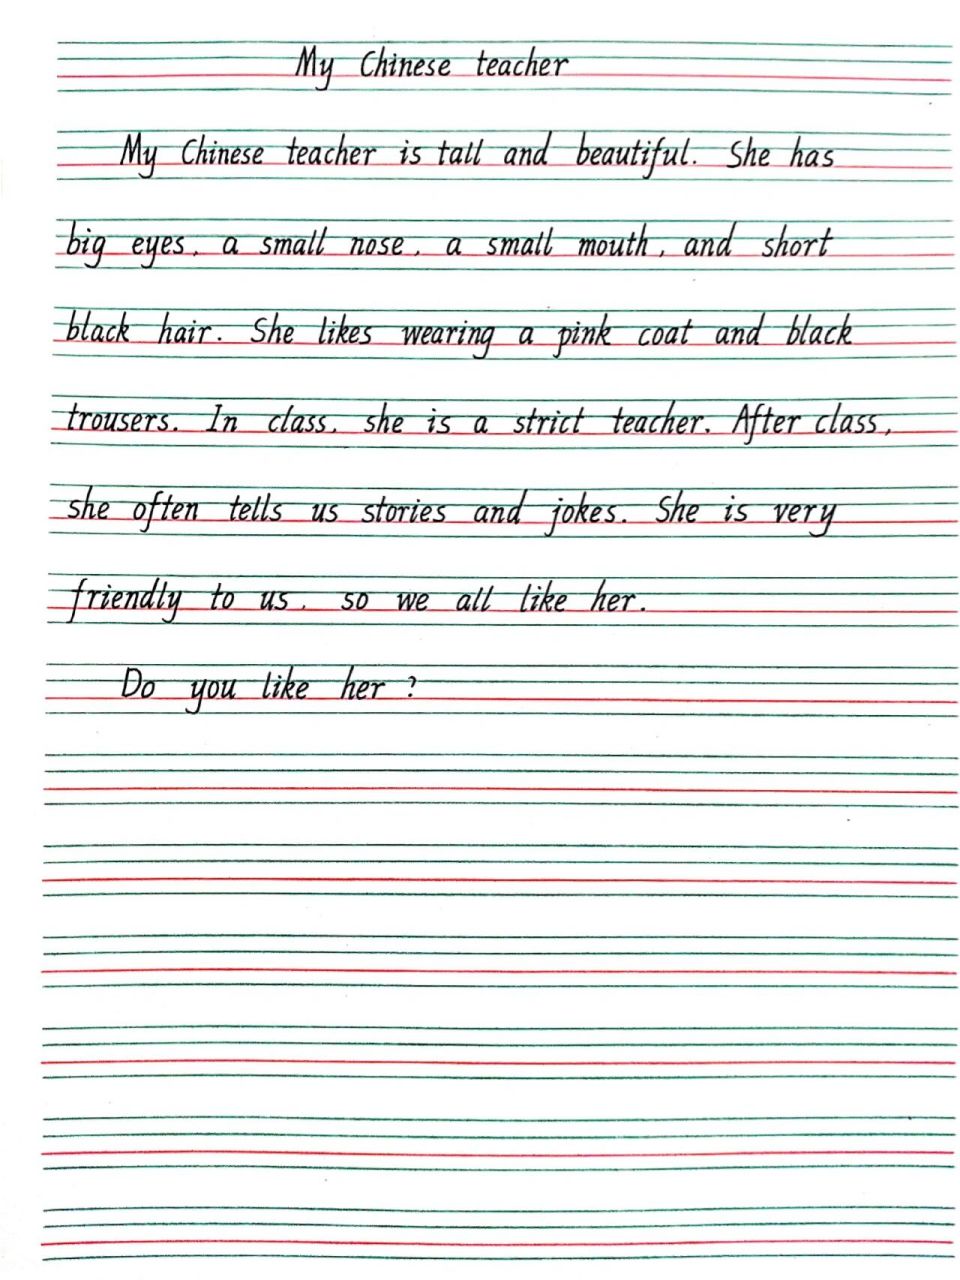 My Chinese teacher
My Chinese teacher is tall and beautiful. She has
big eyes, a small nose, a small mouth, and short
black hair. She likes wearing a pink coat and black
trousers. In class, she is a strict teacher. After class,
she often tells us stories and jokes. She is very
friendly to us, so we all like her.
Do you like her?